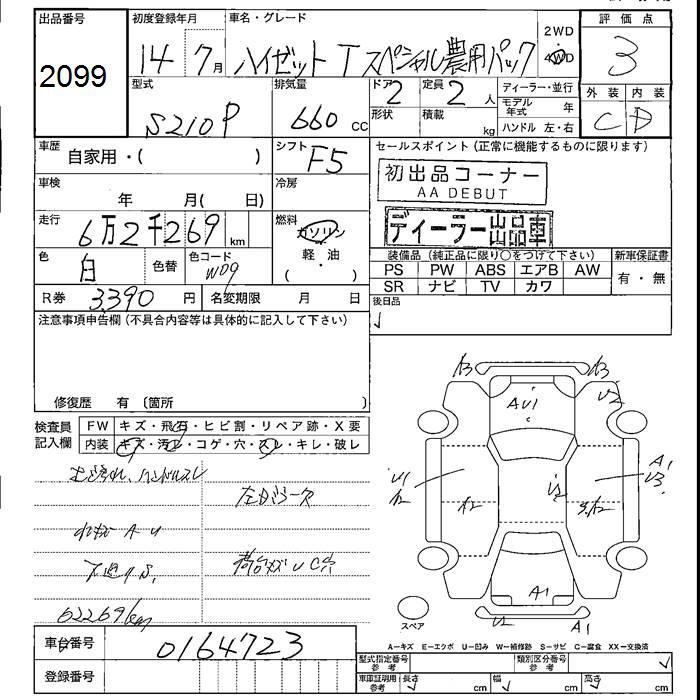 出品番号
2099
初度登録年月
14年 7月
車名・グレード
ハイゼット T スペシャル農用パック
2WD
4WD
評価点
3
外装 内装
C D
型式
S210P
排気量
660 CC
ドア 2
形状
定員 2 人
積載 kg
ディーラー・並行
モデル年式 年
ハンドル 左・右
車歴
自家用・( )
シフト F5
車検
年 月( 日)
冷房
走行
6万2千269 km
燃料
ガソリン
軽・油
( )
セールスポイント(正常に機能するものに限ります)
初出品コーナー
AA DEBUT
ディーラー出品車
色
白
色替
色コード
W09
装備品(純正品に限り○をつけて下さい)
新車保証書
PS PW ABS エアB AW
SR ナビ TV カワ
有・無
R券 3390 円
名変期限 月 日
後日品
注意事項申告欄(不具合内容等は具体的に記入して下さい)
修復歴 有(箇所 )
検査員記入欄
FW キズ・飛石・ヒビ割・リペア跡・X要
内装 キズ・汚レ・コゲ・穴・スレ・キレ・破レ
ハンドルスレ
AU
62269km
A3 A3
AU1
U2
A1
U3
U1
A2
A2
A1
U2
A1
スペア
A-キズ E-エクボ U-凹み W-補修跡 S-サビ C-腐食 XX-交換済
車台番号
0164723
登録番号
型式指定番号 参考
類別区分番号 参考
車庫証明用 参考
長さ cm
幅 cm
高さ cm